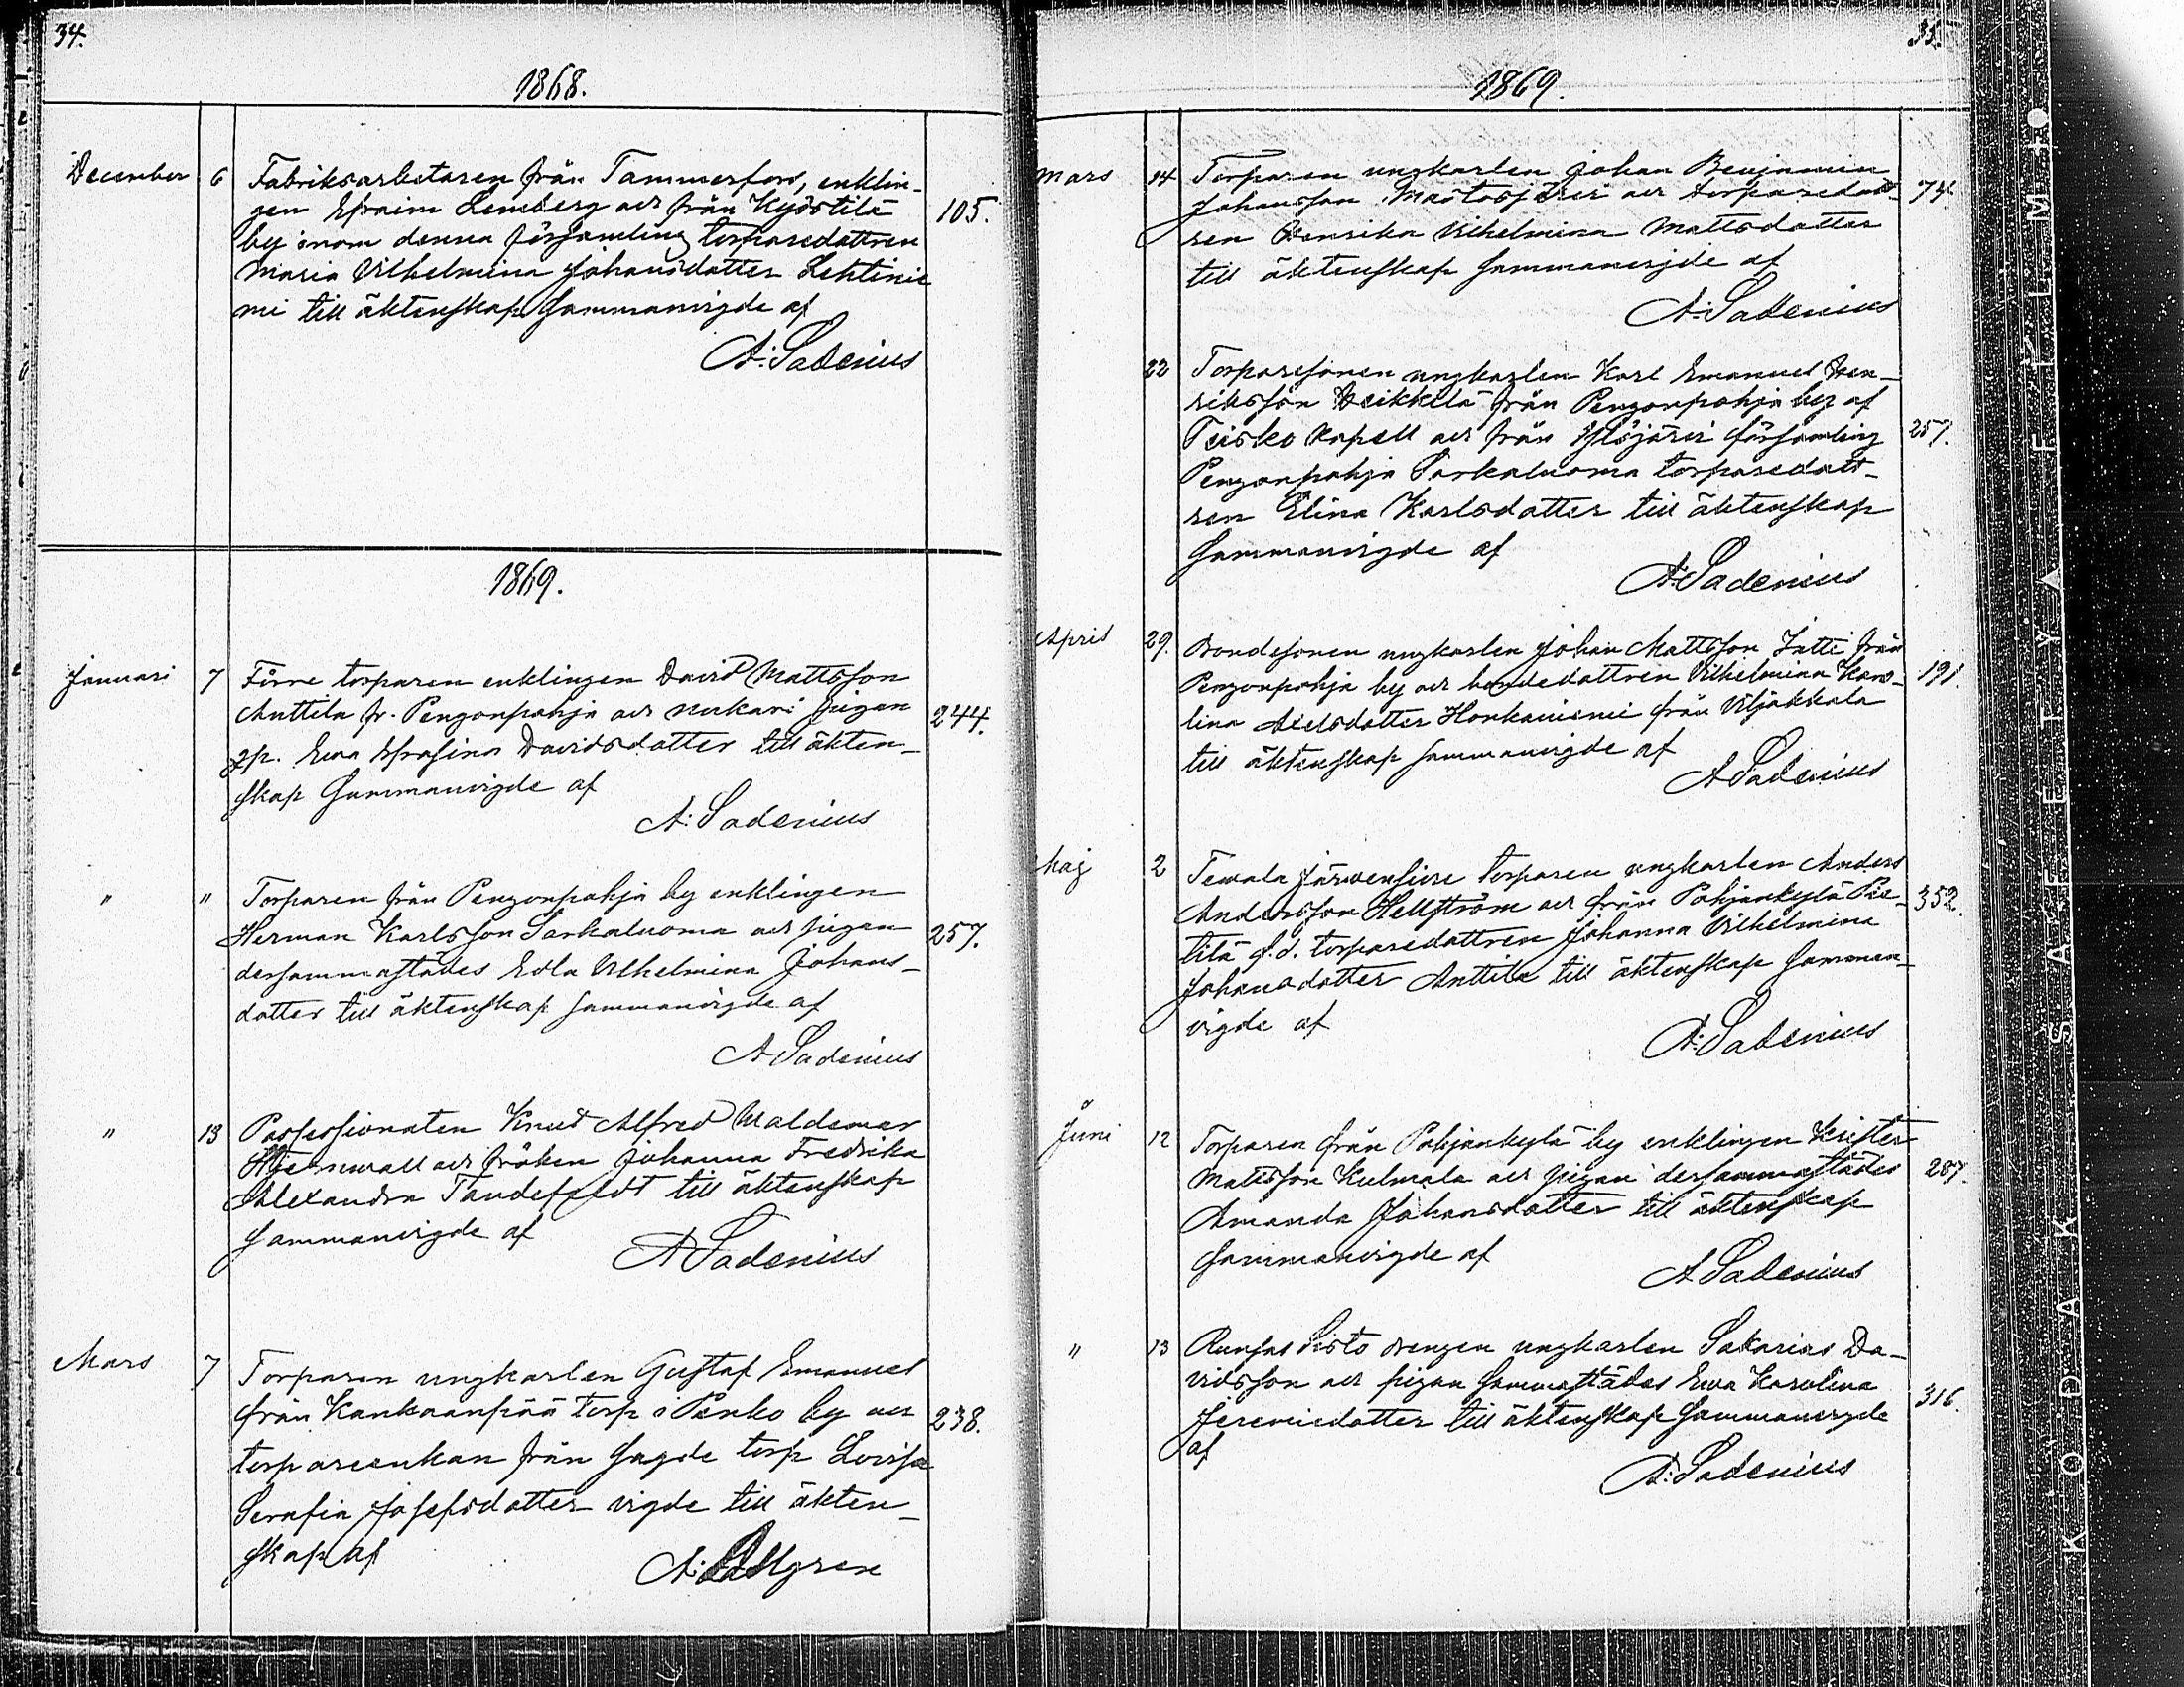 34.
1868.
December 6 Fabriksarbetaren från Tammerfors, enklin-
gen Efraim Lemberg och från Kyöstilä
by inom denna församling torparedottren 105.
Maria Vilhelmina Johansdotter Lehtinie
mi till äktenskap sammanvigde af
A: Sadenius
1869.
Januari 7 Förre torparen enklingen David Mattsson
Anttila fr. Pengonpohja och pigan 244.
Ewa Efrosina Davidsdotter till äkten-
skap sammanvigde af
A: Sadenius
" " Torparen från Pengonpohja by enklingen
Herman Karlsson Sarkaluoma och pigan 257.
dersammastädes Edla Vilhelmina Johans-
dotter till äktenskap sammanvigde af
A Sadenius
" 13 Possessionaten Knut Alfred Waldemar
och fröken Johanna Fredrika
Alexandra Tandefeldt till äktenskap
sammanvigde af
A Sadenius
Mars 7 Torparen ungkarlen Gustaf Emanuel
från Kankaanpää torp i Penko by och 238.
torpareenkan från sagde torp Lovisa
Serafia Josefsdotter vigde till äkten-
skap af
A:
35.
1869.
Mars 14 Torparen ungkarlen Johan Benjamin
Johansson och torparedott- 74.
ren Henrika Vilhelmina Mattsdotter
till äktenskap sammanvigde af
A: Sadenius
22 Torparesonen ungkarlen Karl Emanuel Hen-
riksson Heikkilä från Pengonpohja by af
Teisko kapell och från Ylöjärvi församling 257.
Pengonpohja Sarkaluoma torparedott-
ren Elina Karlsdotter till äktenskap
sammanvigde af
A: Sadenius
April 29. Bondesonen ungkarlen Johan Mattsson från
Pengonpohja by och bondedottren Vilhelmina Karo- 191.
lina Axelsdotter Honkaniemi från Viljakkala
till äktenskap sammanvigde af
A Sadenius
Maj 2 torparen ungkarlen Anders
Andersson Hellström och från Pohjankylä 352.
f.d. torparedottren Johanna Vilhelmina
Johansdotter Anttila till äktenskap samman-
vigde af
A: Sadenius
Juni 12 Torparen från Pohjankylä by enklingen Krister
Mattsson Kulmala och pigan dersammastädes 287.
Amanda Johansdotter till äktenskap
sammanvigde af
A Sadenius
" 13 drengen ungkarlen Sakarias Da-
vidsson och pigan sammastädes Ewa Karolina 316.
Jeremiedotter till äktenskap sammanvigde
af
A: Sadenius
KODAK SAFETY FILM